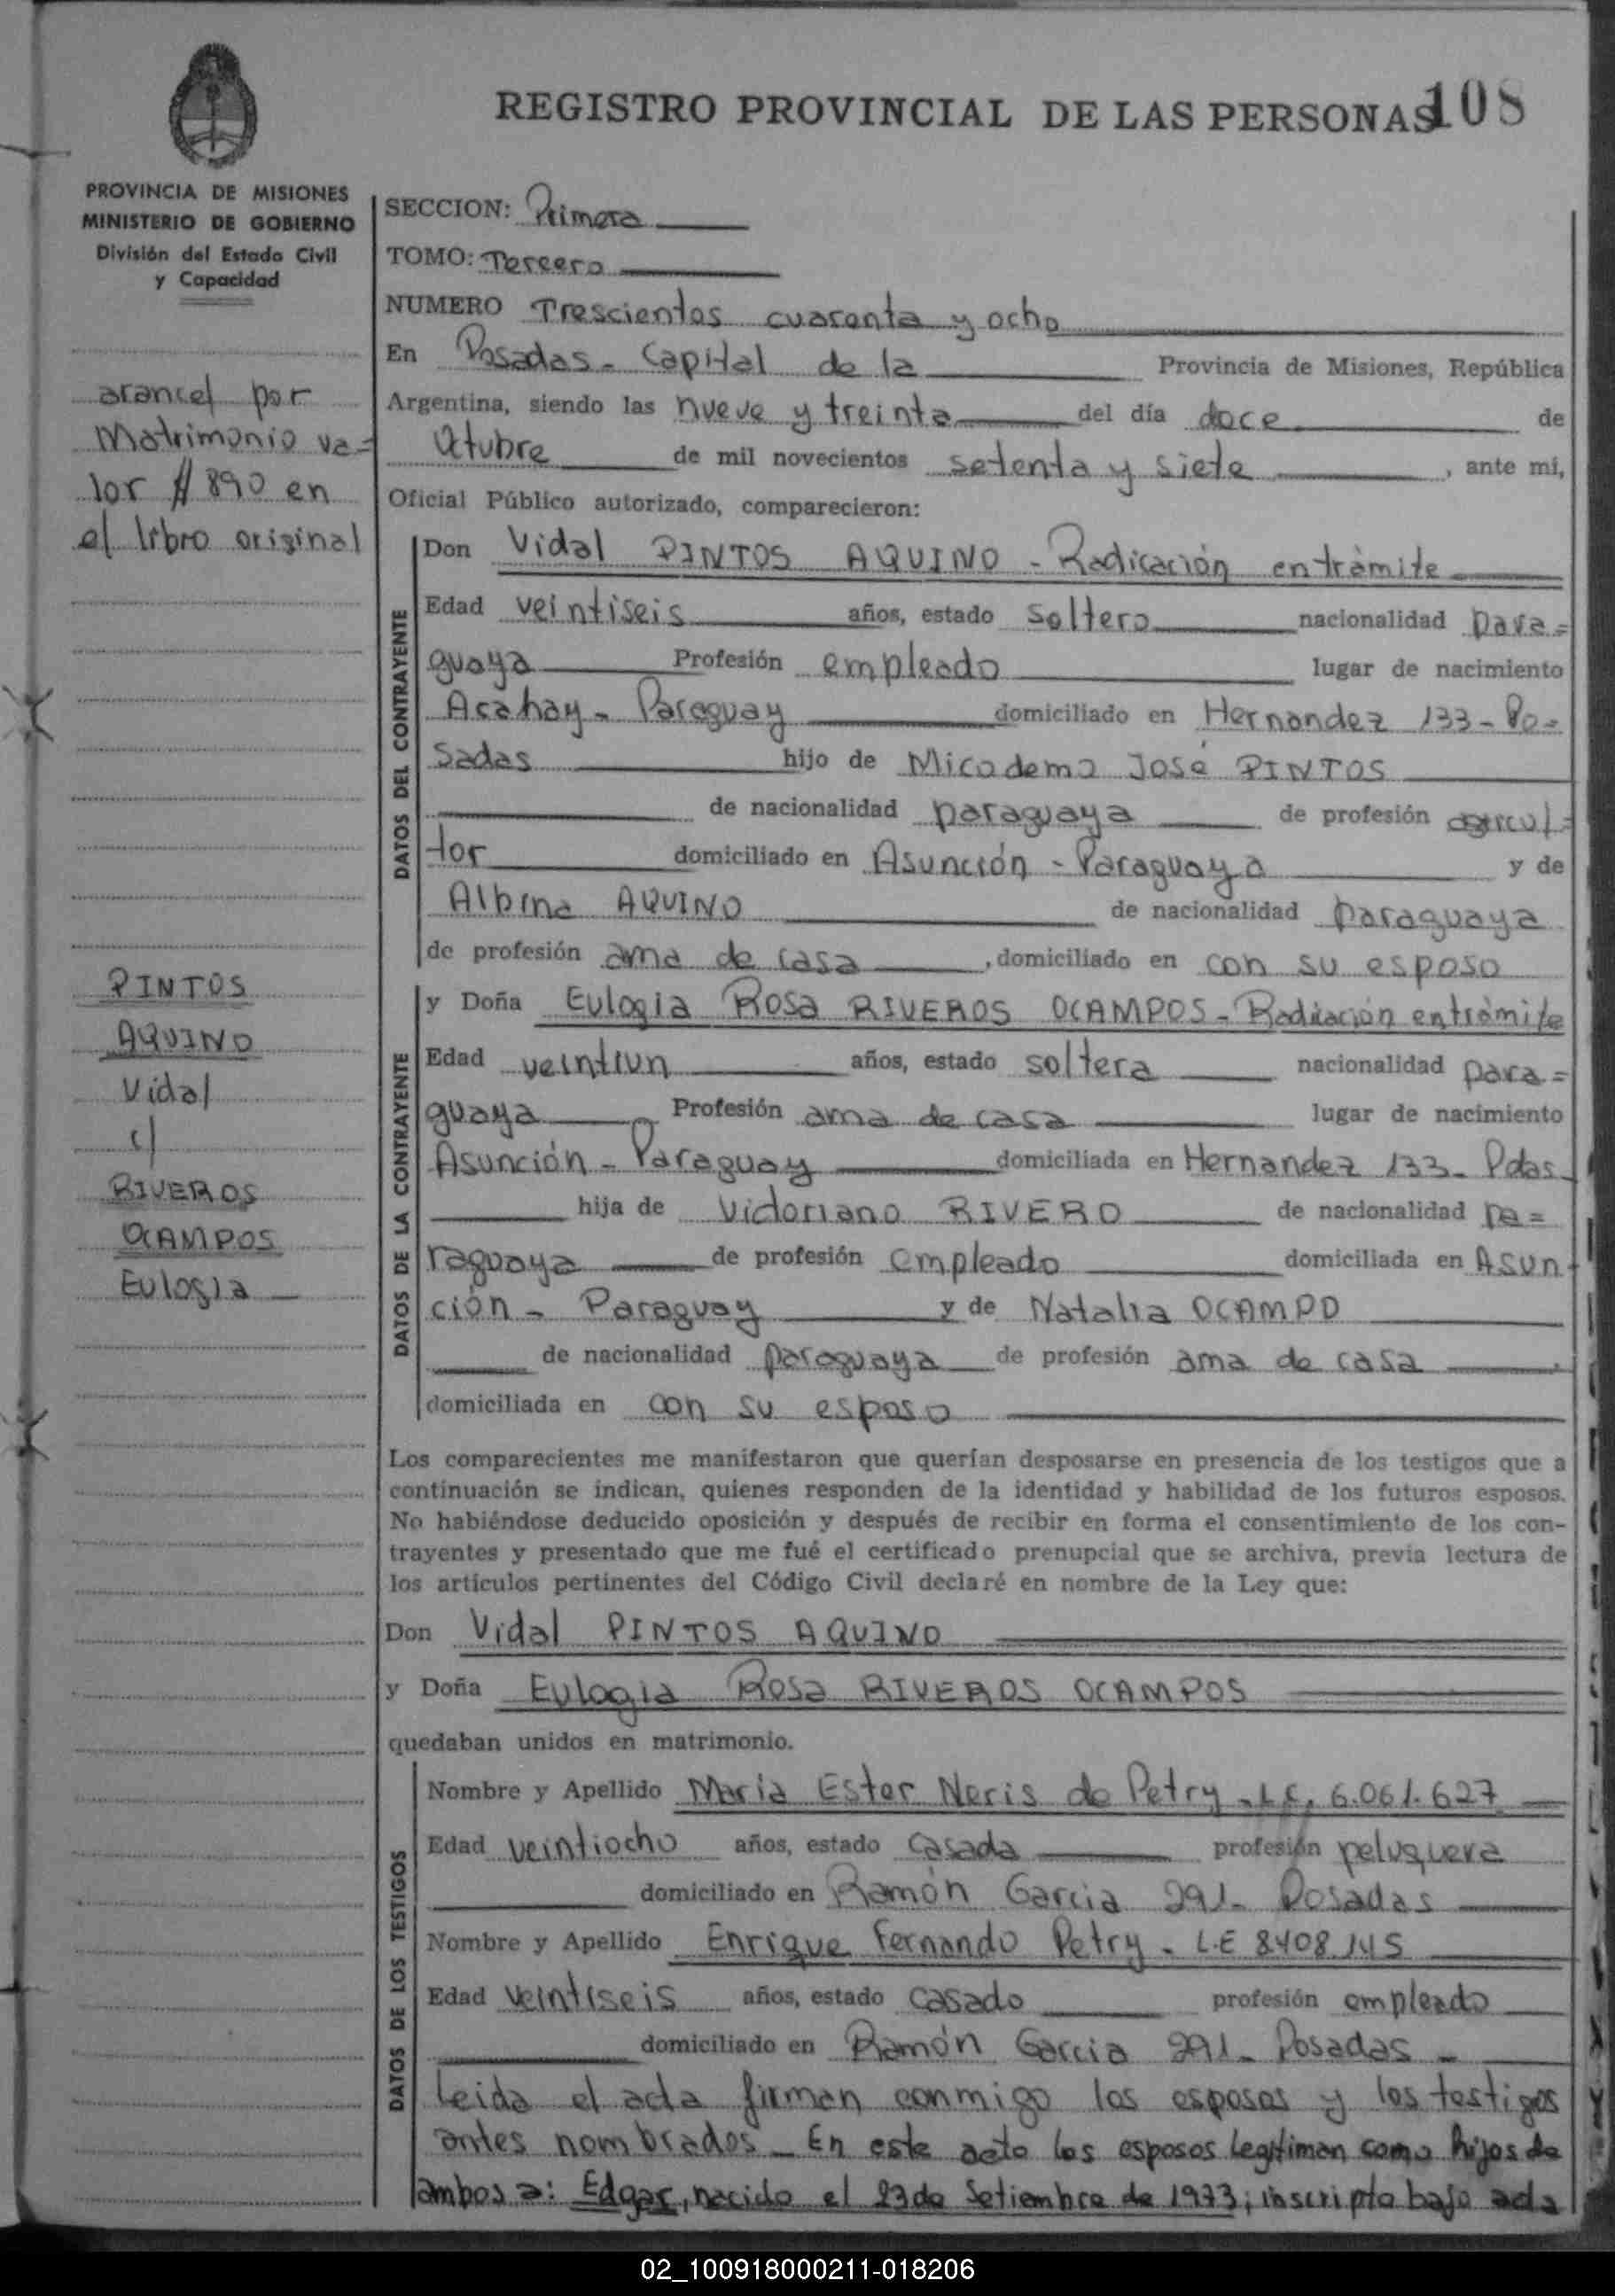 REGISTRO PROVINCIAL DE LAS PERSONAS 108
PROVINCIA DE MISIONES
MINISTERIO DE GOBIERNO
División del Estado Civil
y Capacidad
arancel por
Matrimonio va=
lor $ 890 en
el libro original
PINTOS
AQUINO
Vidal
c/
RIVEROS
OCAMPOS
Eulogia
SECCION: Primera
TOMO: Tercero
NUMERO Trescientos cuarenta y ocho
En Posadas - Capital de la Provincia de Misiones, República
Argentina, siendo las nueve y treinta del día doce de
Octubre de mil novecientos setenta y siete, ante mí,
Oficial Público autorizado, comparecieron:
DATOS DEL CONTRAYENTE
Don Vidal PINTOS AQUINO - Radicación en trámite
Edad veintiseis años, estado soltero nacionalidad para=
guaya Profesión empleado lugar de nacimiento
Acahay - Paraguay domiciliado en Hernandez 133 - Po=
sadas hijo de Micodemo José PINTOS
de nacionalidad paraguaya de profesión agricul=
tor domiciliado en Asunción - Paraguaya y de
Albina AQUINO de nacionalidad paraguaya
de profesión ama de casa, domiciliado en con su esposo
DATOS DE LA CONTRAYENTE
y Doña Eulogia Rosa RIVEROS OCAMPOS - Radicación en trámite
Edad veintiun años, estado soltera nacionalidad para=
guaya Profesión ama de casa lugar de nacimiento
Asunción - Paraguay domiciliada en Hernandez 133 - Pdas.
hija de Victoriano RIVERO de nacionalidad pa=
raguaya de profesión empleado domiciliada en Asun-
ción - Paraguay y de Natalia OCAMPO
de nacionalidad paraguaya de profesión ama de casa
domiciliada en con su esposo
Los comparecientes me manifestaron que querían desposarse en presencia de los testigos que a
continuación se indican, quienes responden de la identidad y habilidad de los futuros esposos.
No habiéndose deducido oposición y después de recibir en forma el consentimiento de los con-
trayentes y presentado que me fué el certificado prenupcial que se archiva, previa lectura de
los artículos pertinentes del Código Civil declaré en nombre de la Ley que:
Don Vidal PINTOS AQUINO
y Doña Eulogia Rosa RIVEROS OCAMPOS
quedaban unidos en matrimonio.
DATOS DE LOS TESTIGOS
Nombre y Apellido Maria Ester Neris de Petry - L.C. 6.061.627
Edad veintiocho años, estado casada profesión peluquera
domiciliado en Ramón Garcia 291 - Posadas
Nombre y Apellido Enrique Fernando Petry - L.E 8408145
Edad veintiseis años, estado casado profesión empleado
domiciliado en Ramón Garcia 291 - Posadas -
Leida el acta firman conmigo los esposos y los testigos
antes nombrados - En este acto los esposos Legitiman como hijos de
ambos a: Edgar, nacido el 23 de Setiembre de 1973; inscripto bajo acta
02_100918000211-018206